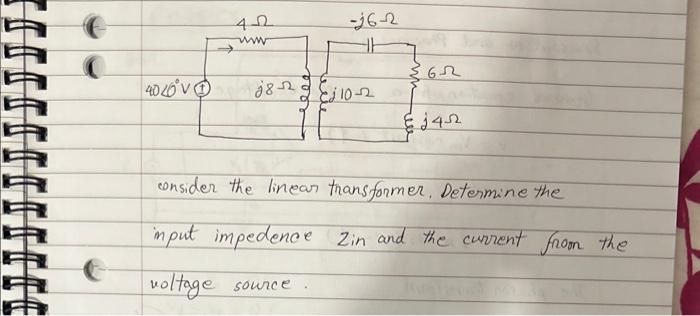 4Ω
-j6Ω
6Ω
40∠0°V
j8Ω
j10Ω
j4Ω
consider the linear transformer. Determine the
input impedence Zin and the current from the
voltage source.